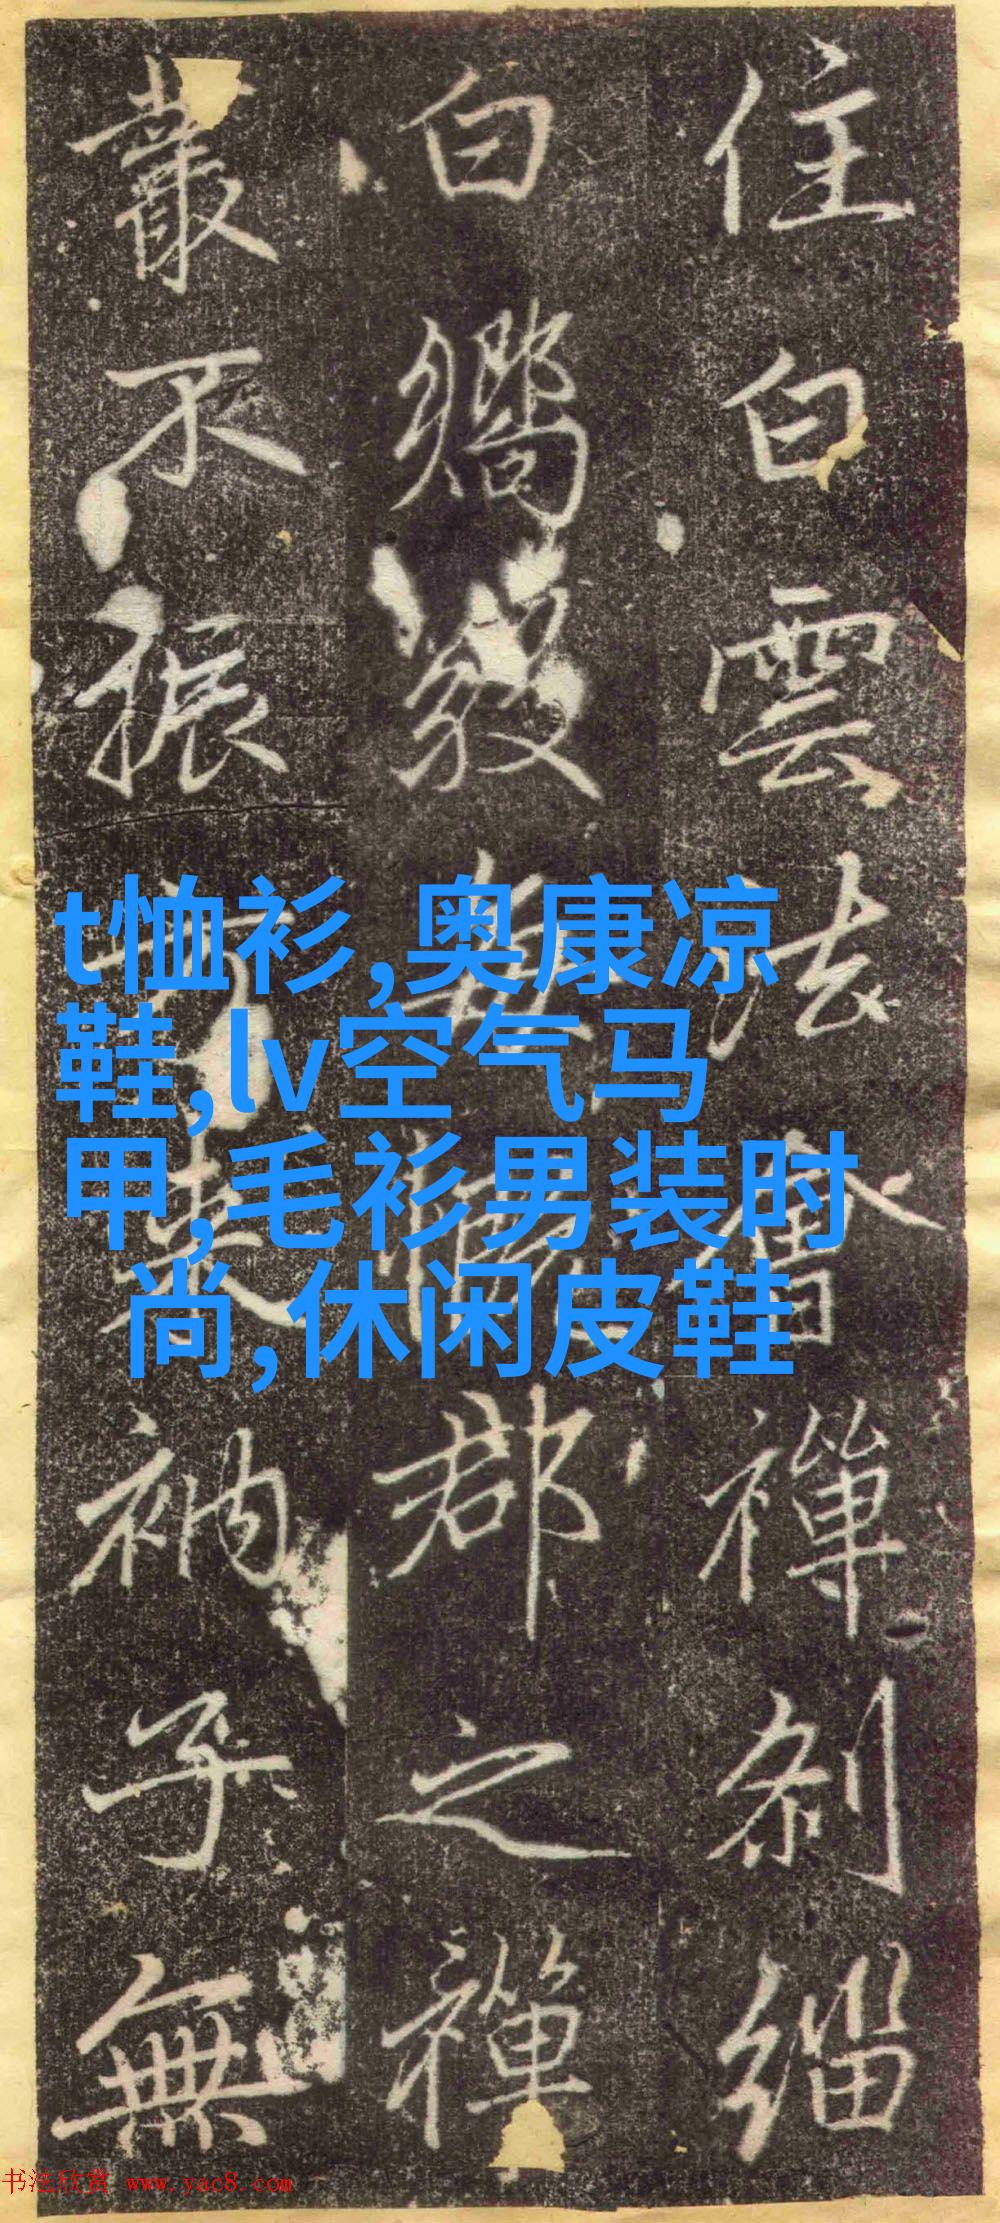 住白雲法會禪刹緇
白
郡之禪
叢不振
衲子無
t恤衫,奥康凉
鞋,lv空气马
甲,毛衫男装时
尚,休闲皮鞋
书法欣赏 www.yac8.com